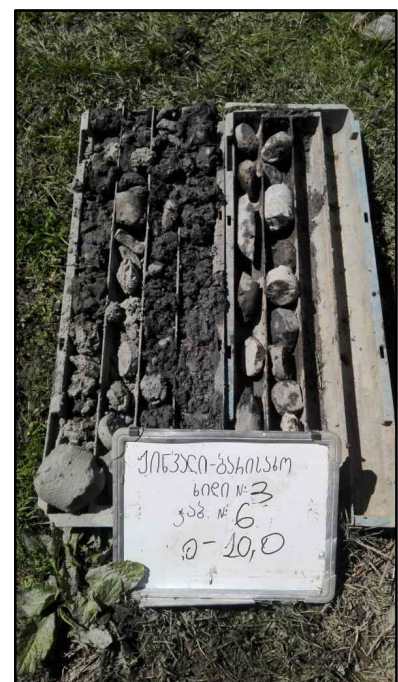 ჟინვალი-ბარისახო
ხიდი №3
ჭაბ. № 6
0-10,0